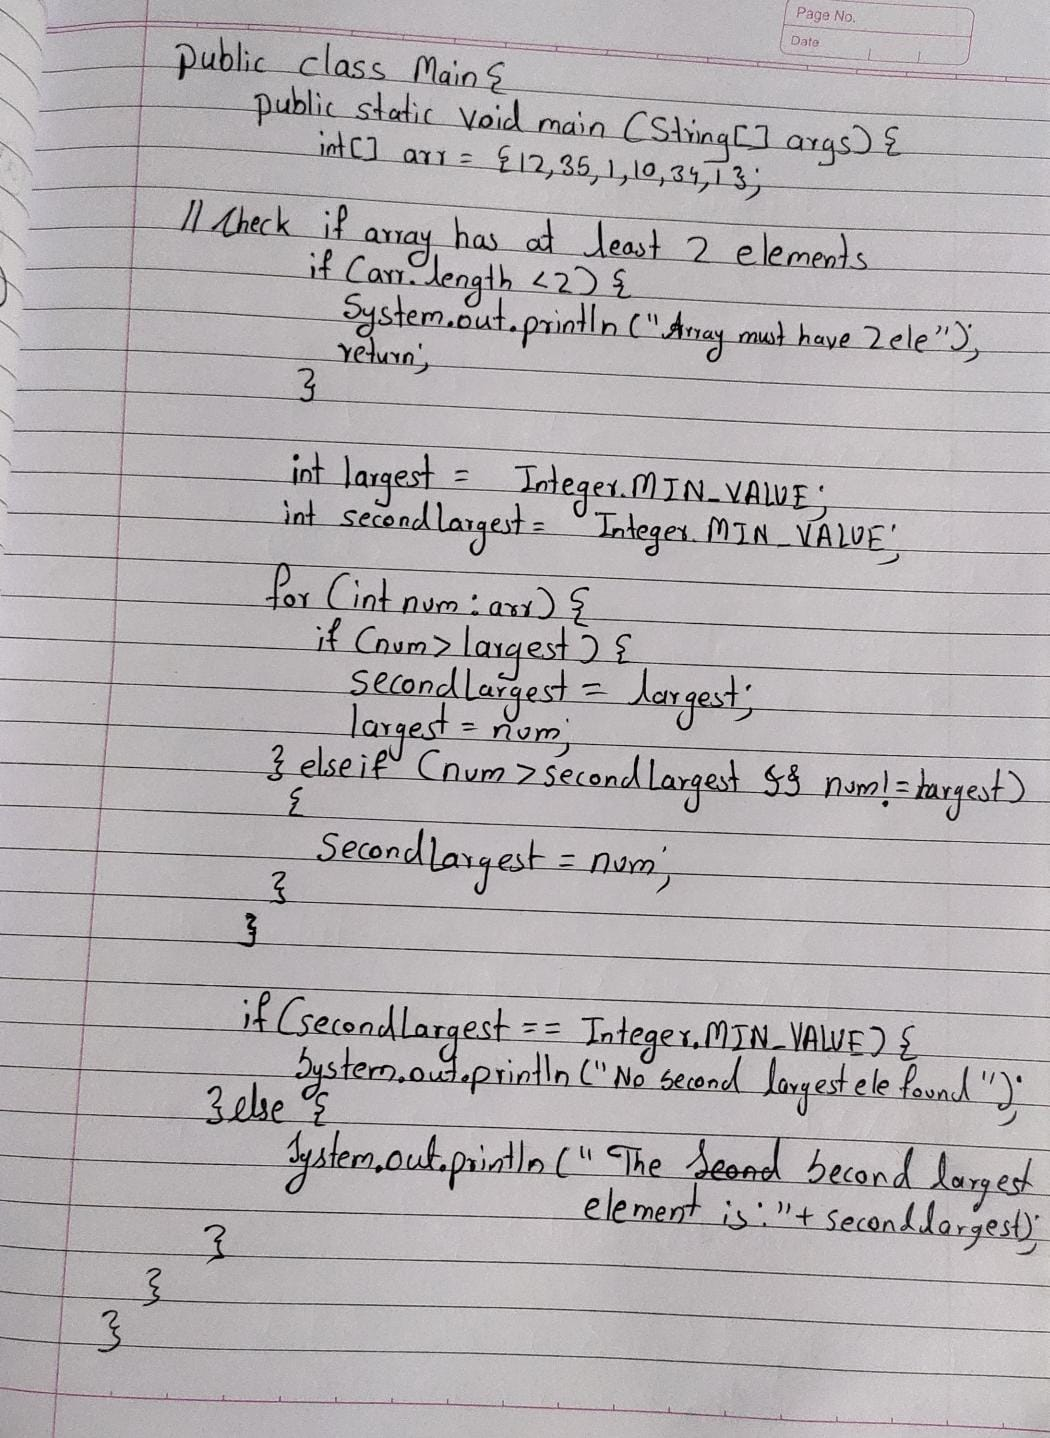 Page No.
Date
public class Main{
public static void main (String[] args) {
int[] arr = {12,35,1,10,34,1};
// Check if array has at least 2 elements
if (arr.length <2) {
System.out.println ("Array must have 2 ele");
return;
}
int largest = Integer.MIN_VALUE;
int secondlargest = Integer.MIN_VALUE;
for (int num : arr) {
if (num > largest) {
secondLargest = largest;
largest = num;
} else if (num > secondLargest && num != largest)
{
SecondLargest = num;
}
}
if (secondLargest == Integer.MIN_VALUE) {
System.out.println ("No second largest ele found");
} else {
System.out.println (" The Seond second largest
element is : "+ secondlargest);
}
}
}